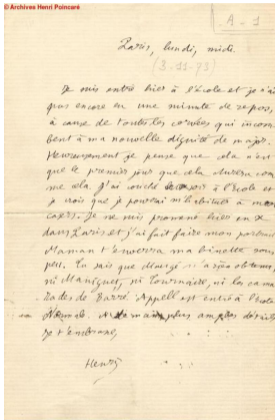 © Archives Henri Poincaré
A - 1
Paris, lundi, midi.
(3-11-73)
Je suis entré hier à l'École et je n'ai
pas encore eu une minute de repos,
à cause de toutes les corvées qui incom
bent à ma nouvelle dignité de major.
Heureusement je pense que cela n'est
que le premier jour que cela durera com
me cela. J'ai couché à l'École et
je crois que je pourrai m'habituer à mon
casert. Je me suis promené hier en
dans Paris et j'ai fait faire mon portrait
Maman t'enverra ma binette sous
peu. Tu sais que élargi n'a rien obtenu,
ni Manuguet, ni Tournaire, ni les cama
rades de Barré. Appell est entré à l'École
Normale. A demain plus amples détails
je t'embrasse,
Henri